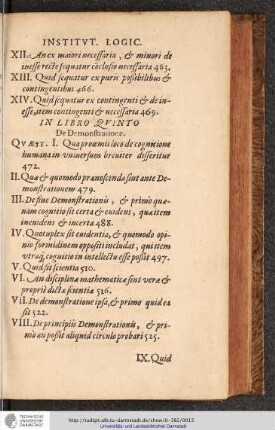 INSTITVT. LOGIC.
XII. An ex maiori necessaria, & minori de
inesse recte sequatur cõclusio necessaria 463.
XIII. Quid sequatur ex puris posibilibus &
contingentibus 466.
XIV. Quid sequatur ex contingenti & de in-
esse, item contingenti & necessaria 469.
IN LIBRO QVINTO
De Demonstratione.
QVÆST. I. Qua proœmij loco de cognitione
humana in vniuersum breuiter disseritur
472.
II. Quæ & quomodo prænoscenda sint ante De-
monstrationem 479.
III. De fine Demonstrationis, & primo quæ-
nam cognitio sit certa & euidens, quæ item
ineuidens & incerta 488.
IV. Quotuplex sit euidentia, & quomodo opi-
nio formidinem oppositi includat, qui item
vtraq; cognitio in intellectu esse possit 497.
V. Quid sit scientia 510.
VI. An disciplinæ mathematicæ sint veræ &
propriè dictæ scientiæ 516.
VII. De demonstratione ipsa, & primo quid ea
sit 522.
VIII. De principiis Demonstrationis, & pri-
mò an possit aliquid circulo probari 525.
IX. Quid
TECHNISCHE
UNIVERSITÄT
DARMSTADT
http://tudigit.ulb.tu-darmstadt.de/show/ti-382/0015
Universitäts- und Landesbibliothek Darmstadt